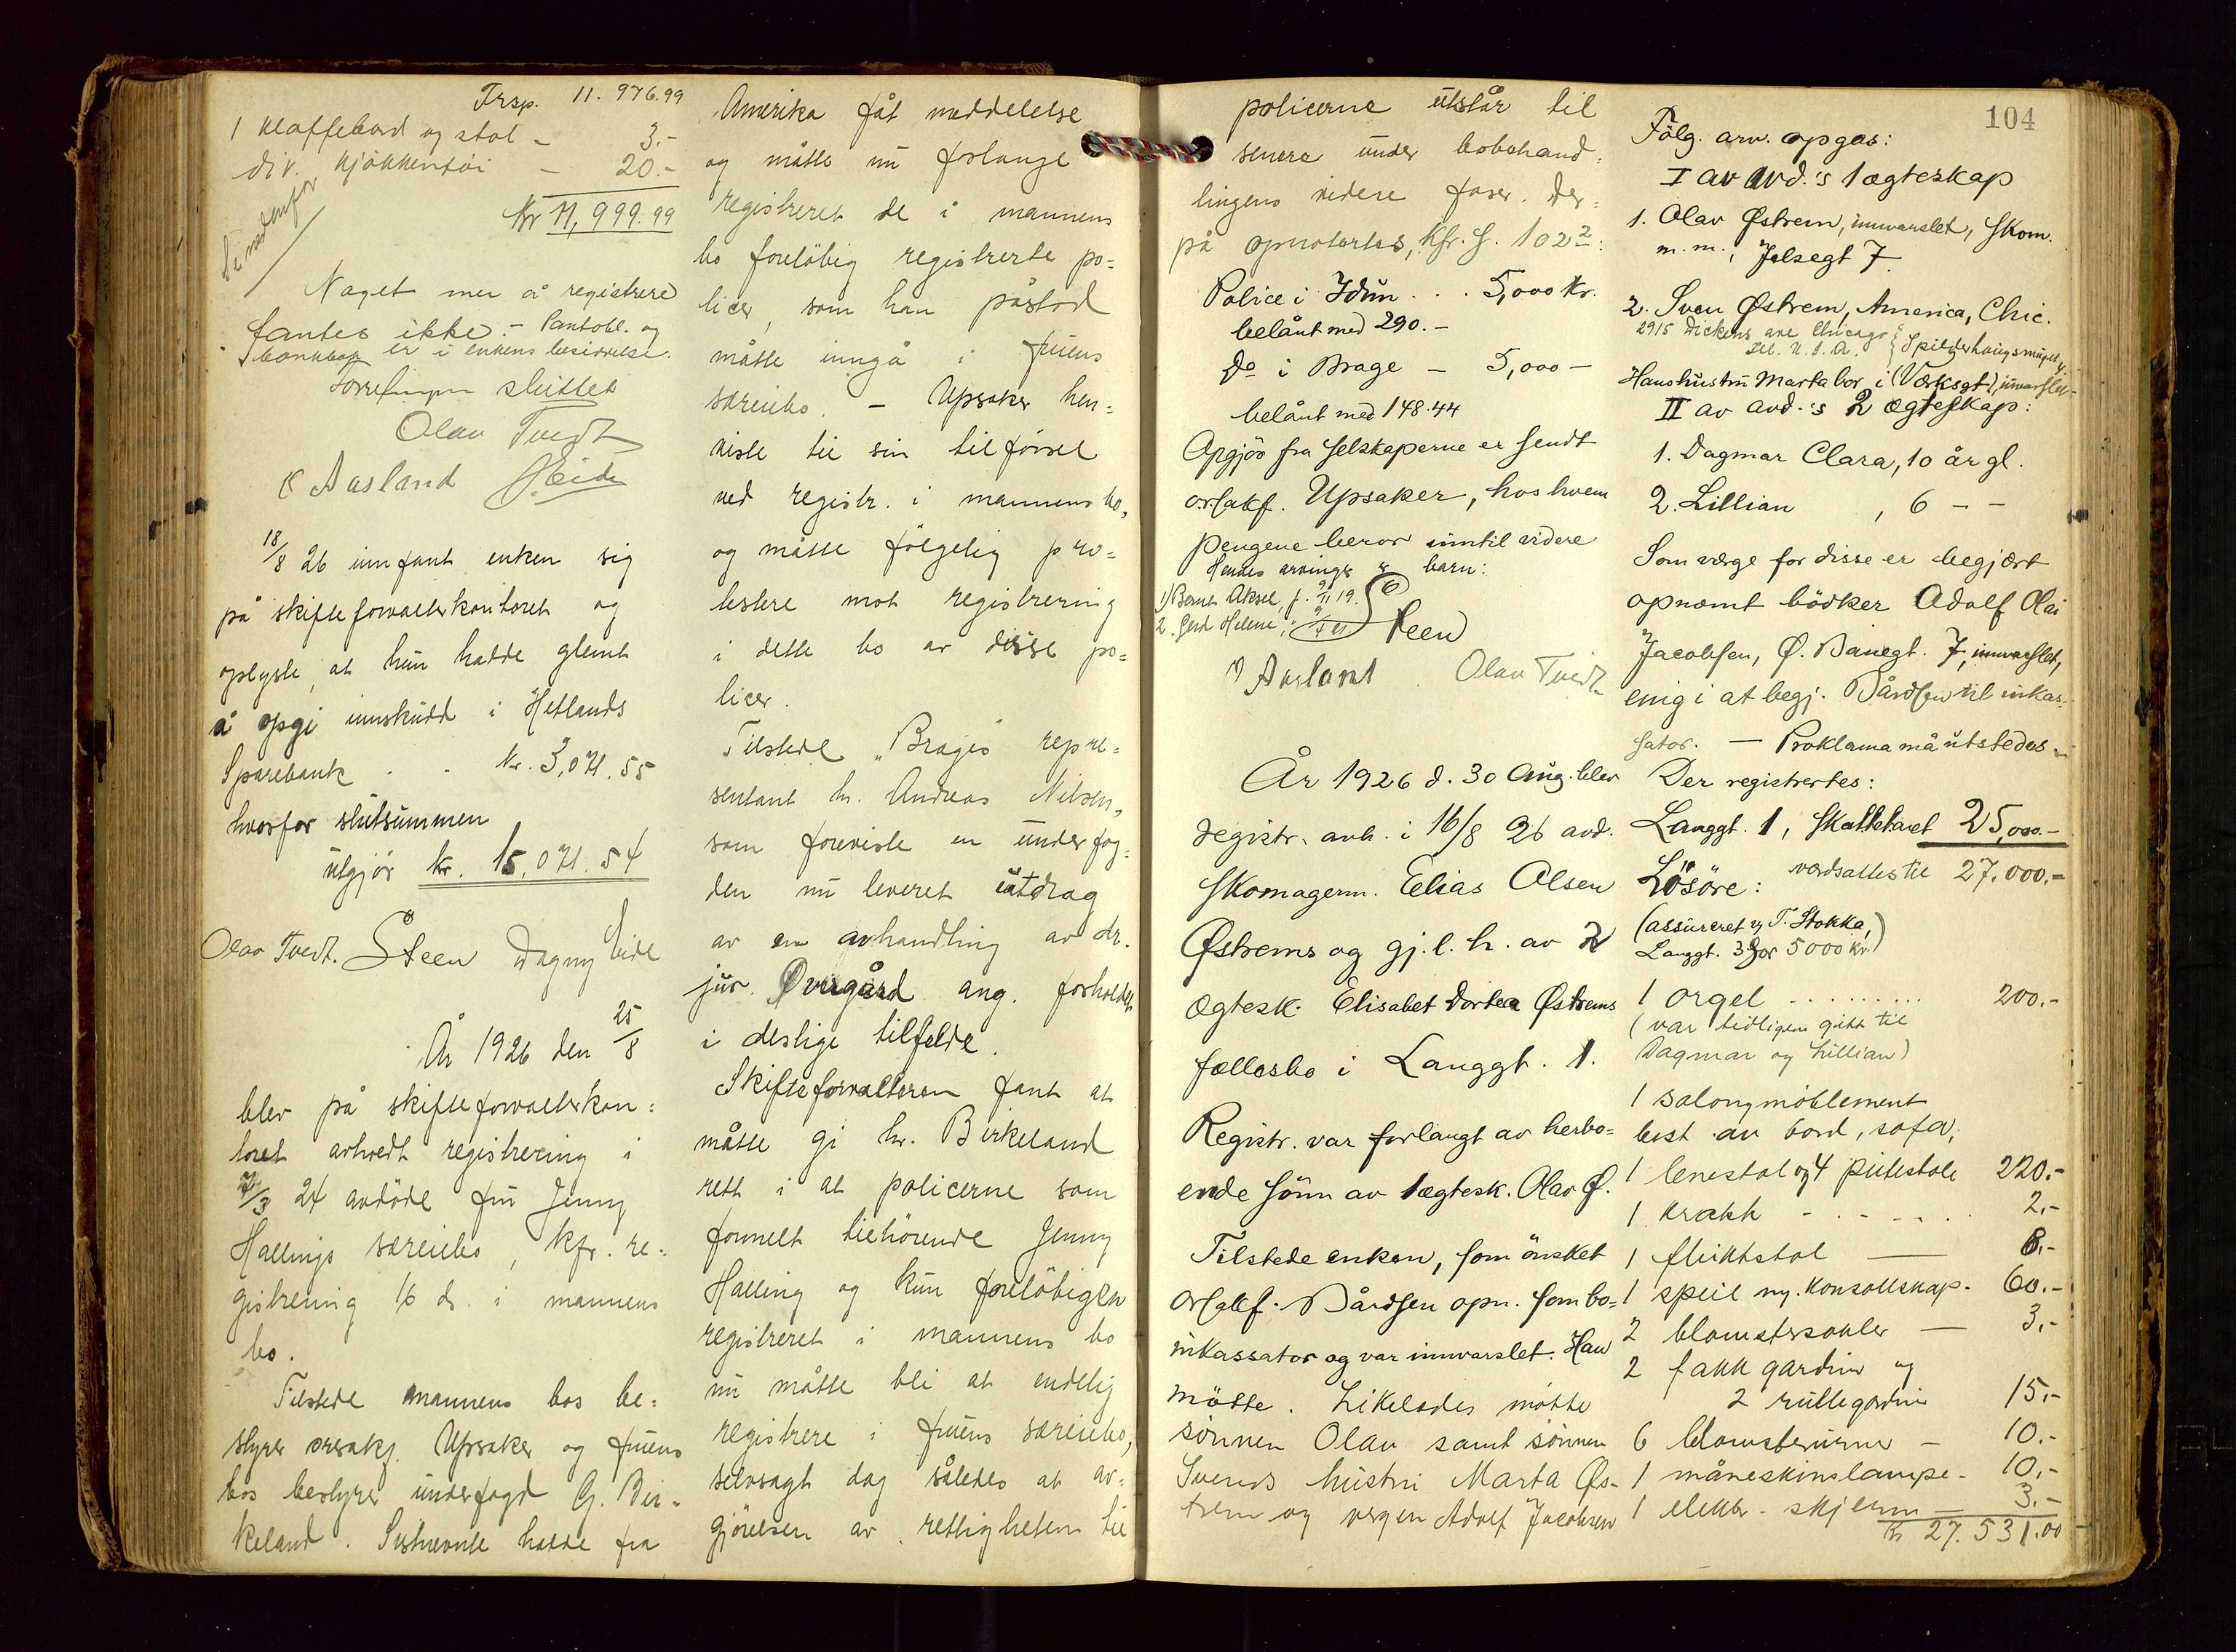 Trsp. 11.976.99
1 klaffebord og stol - 3.-
div. kjökkentöi - 20.-
Kr 11,999.99
Se nedenfor
Noget mer å registrere
fantes ikke. - Pantobl. og
bankbok er i enkens besiddelse.
Forretningen sluttet
Olav Tvedt
O Aasland Eide
18/8 26 innfant enken sig
på skifteforvalterkontoret og
oplyste, at hun hadde glemt
å opgi innskudd i Hetlands
Sparebank . . kr. 3,071.55
hvorfor slutsummen
utgjör kr. 15,071.54
Olav Tvedt. Steen Dagny Eide
År 1926 den 25/8
blev på skifteforvalterkon=
toret avholdt registrering i
/3 24 avdöde fru Jenny
Hallings særeiebo, kfr. re=
gistrering 1/6 ds. i mannens
bo.
Tilstede mannens bos be=
styrer orsakf. Upsaker og fruens
bos bestyrer underfogd G. Bir=
keland. Sistnevnte hadde fra
Amerika fåt meddelelse
og måtte nu forlange
registreret de i mannens
bo foreløbig registrerte po=
licer, som han påstod
måtte inngå i fruens
særeiebo. - Upsaker hen=
viste til sin tilförsel
ved registr. i mannens bo,
og måtte fölgelig pro=
testere mot registrering
i dette bo av disse po=
licer.
Tilstede "Brages" repre=
sentant hr. Andreas Nilsen,
som foreviste en underfog=
den nu leveret utdrag
av en avhandling av dr.
jur. Øvergård ang. forholdet
i deslige tilfelde.
Skifteforvalteren fant at
måtte gi hr. Birkeland
rett i at policerne som
formelt tilhörende Jenny
Halling og kun forelöbigen
registreret i mannens bo
nu måtte bli at endelig
registrere i fruens særeiebo,
selvsagt dog således at av=
gjörelsen av rettigheten til
policerne utstår til
senere under bobehand=
lingens videre faser. Der=
på opnotertes, kfr. f. 102²:
Police i Idun . . . 5,000 kr.
belånt med 290.-
Do i Brage - 5,000 -
belånt med 148.44
Opgjör fra selskaperne er sendt
orsakf. Upsaker, hos hvem
pengene beror inntil videre
Hendes arvinger er barn:
1) Bernt Aksel, f. 9/11 19.
2. Gerd Helene,
Steen
O Aasland Olav Tvedt
År 1926 d. 30 Aug. blev
registr. avh. i 16/8 26 avd.
skomagerm. Elias Olsen
Østrems og gj. l. h. av 2
ægtesk. Elisabet Dortea Østrems
fællesbo i Langgt. 1.
Registr. var forlangt av herbo=
ende sönn av 1 ægtesk. Olav Ø.
Tilstede enken, som önsket
orsakf. Bårdsen opn. som bo=
inkassator og var innvarslet. Han
mötte. Likeledes mötte
sönnen Olav samt sönnen
Svends hustru Marta Øs-
trem og vergen Adolf Jacobsen
104
Følg. arv. opgas:
I av avd.'s 1 ægteskap
1. Olav Østrem, innvarslet, skom.
m.m., Jelsegt 7.
2. Sven Østrem, America, Chic.
2915 Dickens ave Chicago
Ill. U.S.A.
Hans hustru Marta bor i (Verksgt)
II av avd.'s 2 ægteskap:
1. Dagmar Clara, 10 år gl.
2. Lillian , 6 - -
Som verge for disse er begjært
opnæmt bödker Adolf Olai
Jacobsen, Ø. Banegt. 7, innvarslet,
enig i at begj. Bårdsen til inkas=
sator. - Proklama må utstedes.-
Der registrertes:
Langgt. 1, skattetaxt 25,000.-
værdsattes til 27.000.-
Lösöre:
(assureret v. T. Stokka,
Langgt. 39 for 5000 kr.)
1 orgel ......... 200.-
(var tidligere gitt til
Dagmar og Lillian)
1 salongmöblement
best. av bord, sofa,
1 lenestol og 4 pidestole 220.-
1 krakk - - - - - 2.-
1 fliktstol 6.-
1 speil m. konsollskap. 60.-
2 blomstersøiler - 3.-
2 fakk gardiner og
2 rullegardin 15.-
6 blomsterurner - 10.-
1 måneskinslampe - 10.-
1 elektr. skjerm - 3.-
Kr 27.531.00